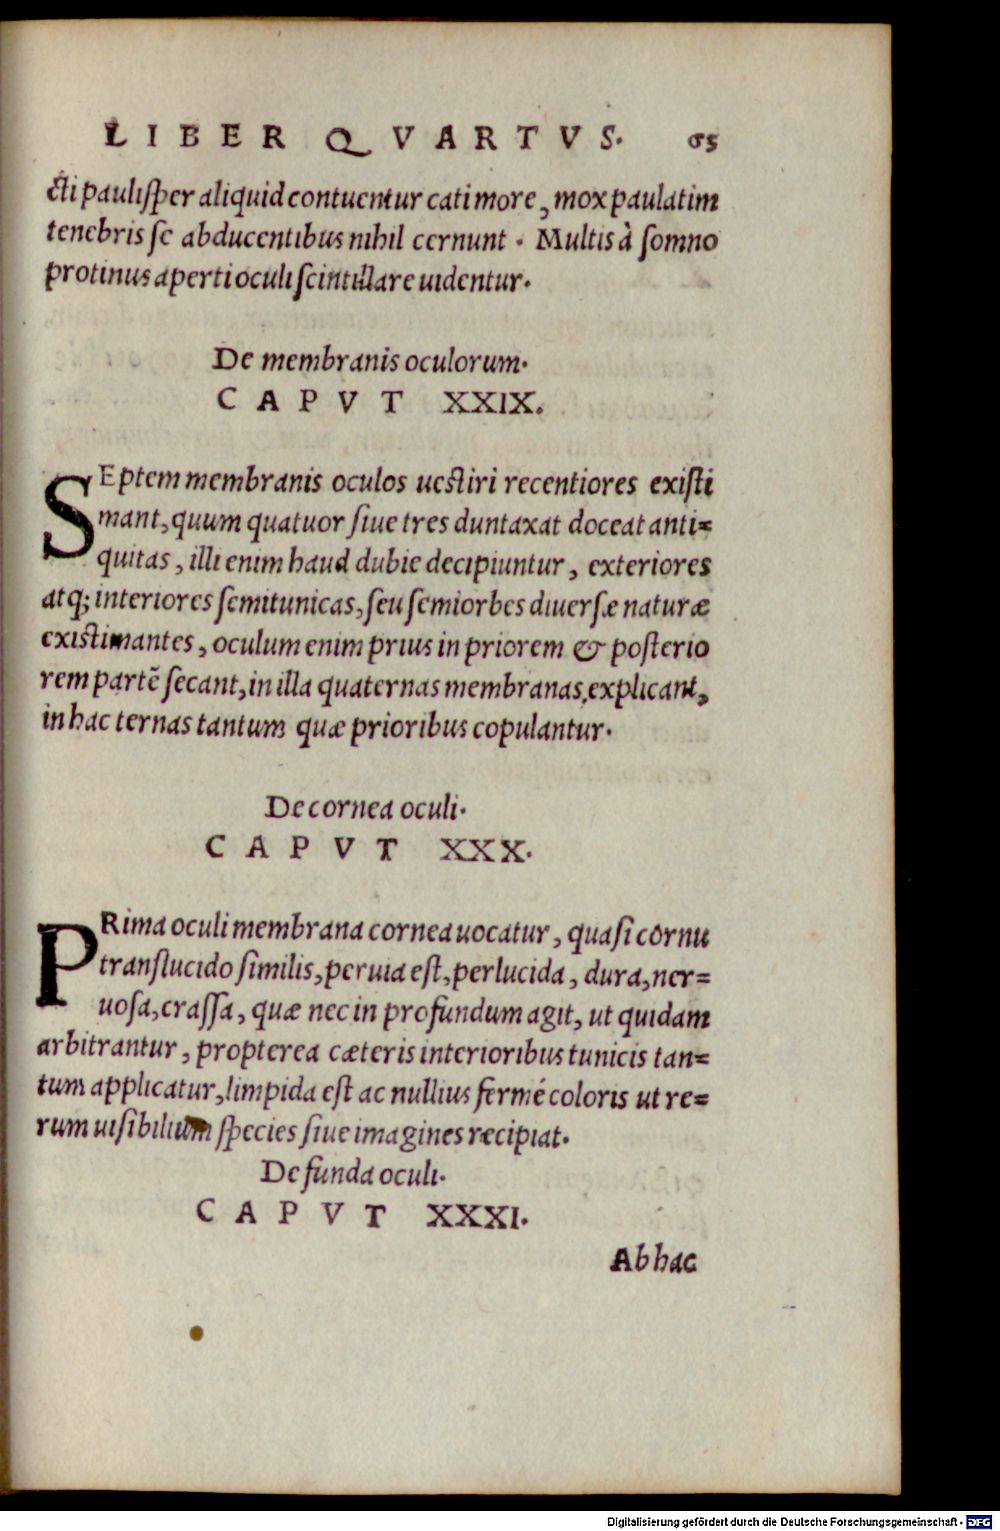 LIBER QVARTVS. 65
cti paulisper aliquid contuentur cati more, mox paulatim
tenebris se abducentibus nihil cernunt. Multis à somno
protinus aperti oculi scintillare uidentur.
De membranis oculorum.
CAPVT XXIX.
SEptem membranis oculos uestiri recentiores existi
mant, quum quatuor siue tres duntaxat doceat anti=
quitas, illi enim haud dubie decipiuntur, exteriores
atq; interiores semitunicas, seu semiorbes diuersæ naturæ
existimantes, oculum enim prius in priorem & posterio
rem partē secant, in illa quaternas membranas explicant,
in hac ternas tantum quæ prioribus copulantur.
De cornea oculi.
CAPVT XXX.
PRima oculi membrana cornea uocatur, quasi cornu
translucido similis, peruia est, perlucida, dura, ner=
uosa, crassa, quæ nec in profundum agit, ut quidam
arbitrantur, propterea cæteris interioribus tunicis tan=
tum applicatur, limpida est ac nullius fermé coloris ut re=
rum uisibilium species siue imagines recipiat.
De funda oculi.
CAPVT XXXI.
Ab hac
Digitalisierung gefördert durch die Deutsche Forschungsgemeinschaft - DFG